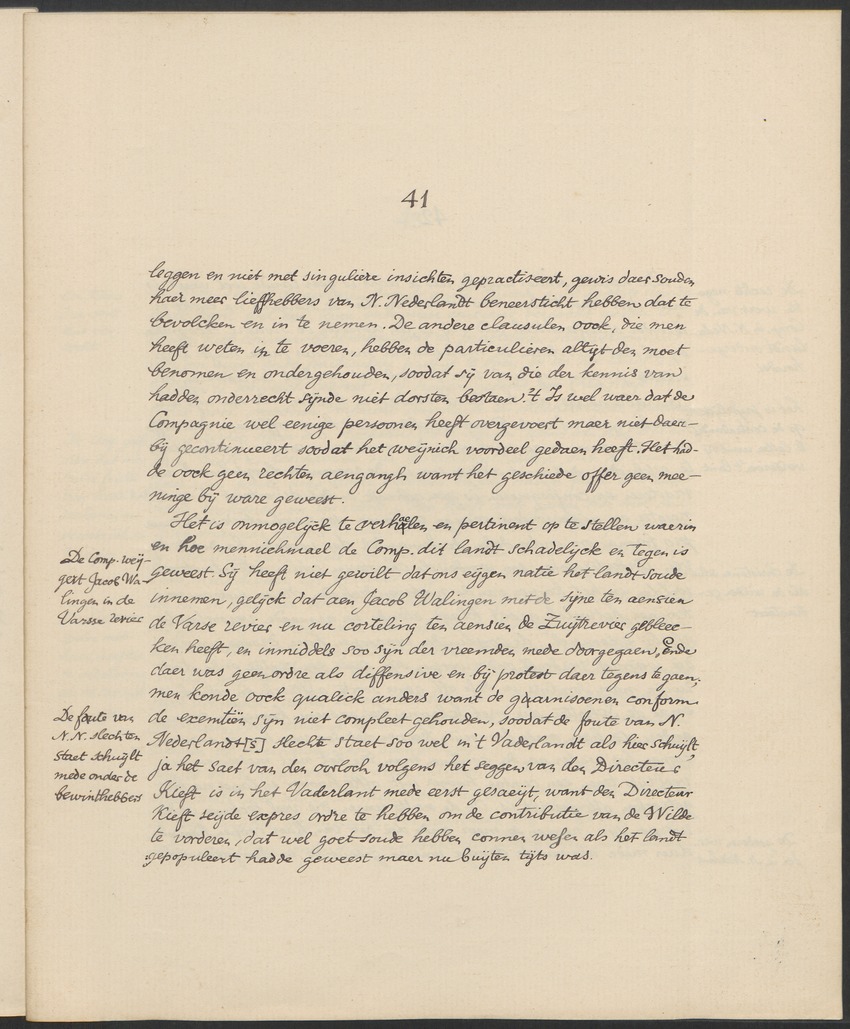 41
leggen en niet met singuliere insichten gepractiseert, gewis daer souden
haer meer lieffhebbers van N. Nederlandt beneersticht hebben dat te
bevolcken en in te nemen. De andere clausulen oock, die men
heeft weten in te voeren, hebben de particulieren altyt den moet
benomen en ondergehouden, soodat sÿ van die der kennis van
hadden onderrecht sÿnde niet dorsten bestaen. 't Is wel waer dat de
Compagnie wel eenige persoonen heeft overgevoert maer niet daer-
bÿ gecontinueert soodat het weÿnich voordeel gedaen heeft. Het had-
de oock geen rechten aengangh want het geschiede offer geen mee-
ninge bÿ ware geweest.
Het is onmogelÿck te verhaelen en pertinent op te stellen waerin
en hoe mennichmael de Comp. dit landt schadelÿck en tegen is
geweest. Sÿ heeft niet gewilt dat ons eÿgen natie het landt soude
innemen, gelÿck dat aen Jacob Walingen met de sÿne ten aensien
de Varse revier en nu corteling ten aensien de Zuÿtrevier geblee-
ken heeft, en inmiddels soo sÿn der vreemden mede doorgegaen, Ende
daer was geen ordre als diffensive en bÿ protest daer tegens te gaen;
men konde oock qualick anders want de guarnisoenen conform
de exemtiën sÿn niet compleet gehouden, soodat de foute van N.
Nederlandt[s] slechte staet soo wel in 't Vaderlandt als hier schuÿlt,
ja het saet van den oorloch volgens het seggen van den Directeur
Kieft is in het Vaderlant mede eerst gesaeÿt, want den Directeur
Kieft seÿde expres ordre te hebben om de contributie van de Wilde
te vorderen, dat wel goet soude hebben connen wesen als het landt
gepopuleert hadde geweest maer nu buÿten tÿts was.
De Comp. weÿ-
gert Jacob Wa-
lingen in de
Varsse revier
De foute van
N.N. slechten
staet schuÿlt
mede onder de
bewinthebbers